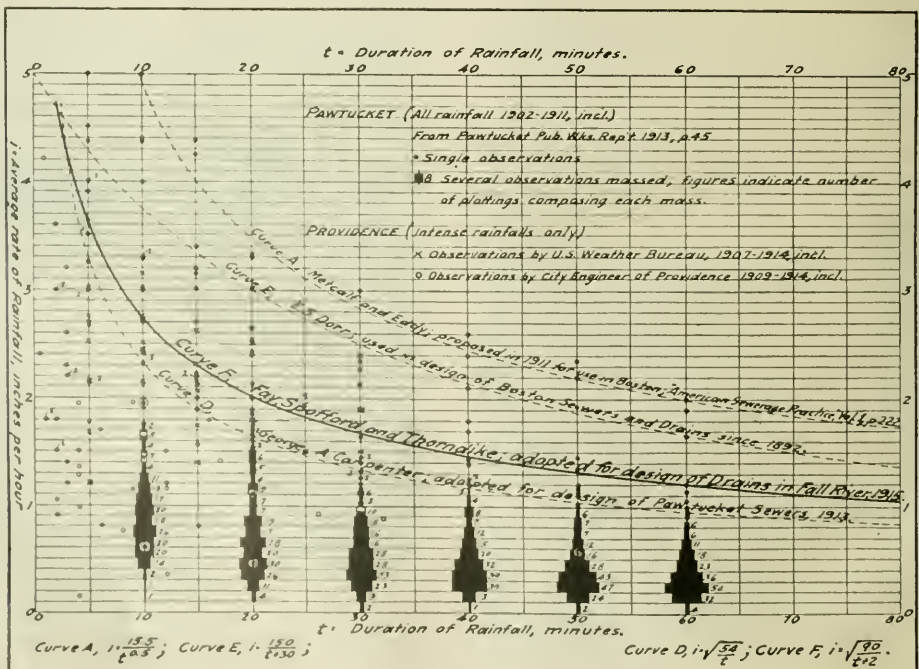 t = Duration of Rainfall, minutes.
0 10 20 30 40 50 60 70 80
5 5
4 4
3 3
2 2
1 1
0 0
i = Average rate of Rainfall, inches per hour
PAWTUCKET (All rainfall 1902-1911, incl.)
From Pawtucket Pub. Wks. Rep't 1913, p.45
• Single observations
8 Several observations massed, figures indicate number
of plottings composing each mass.
PROVIDENCE (intense rainfalls only)
x Observations by U.S. Weather Bureau, 1907-1914, incl.
o Observations by City Engineer of Providence 1909-1914, incl.
Curve A, Metcalf and Eddy; proposed in 1911 for use in Boston; "American Sewerage Practice," Vol. 1, p.222
Curve E, Dorr; used in design of Boston Sewers and Drains since 1892.
Curve F, Fay, Spofford and Thorndike; adopted for design of Drains in Fall River, 1915.
Curve D, George A Carpenter; adopted for design of Pawtucket Sewers, 1913.
0 10 20 30 40 50 60 70 80
t = Duration of Rainfall, minutes.
Curve A, i = 15.5/t^0.5; Curve E, i = 150/t+30;
Curve D, i = √54/t; Curve F, i = √90/t+2.